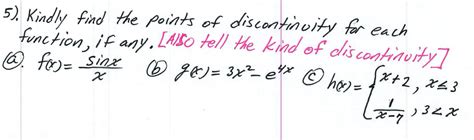 5). Kindly find the points of discontinuity for each
function, if any. [Also tell the kind of discontinuity]
ⓐ. f(x) = sinx/x ⓑ g(x) = 3x² - e^4x ⓒ h(x) = { x+2, x≤3
1/(x-7), 3<x